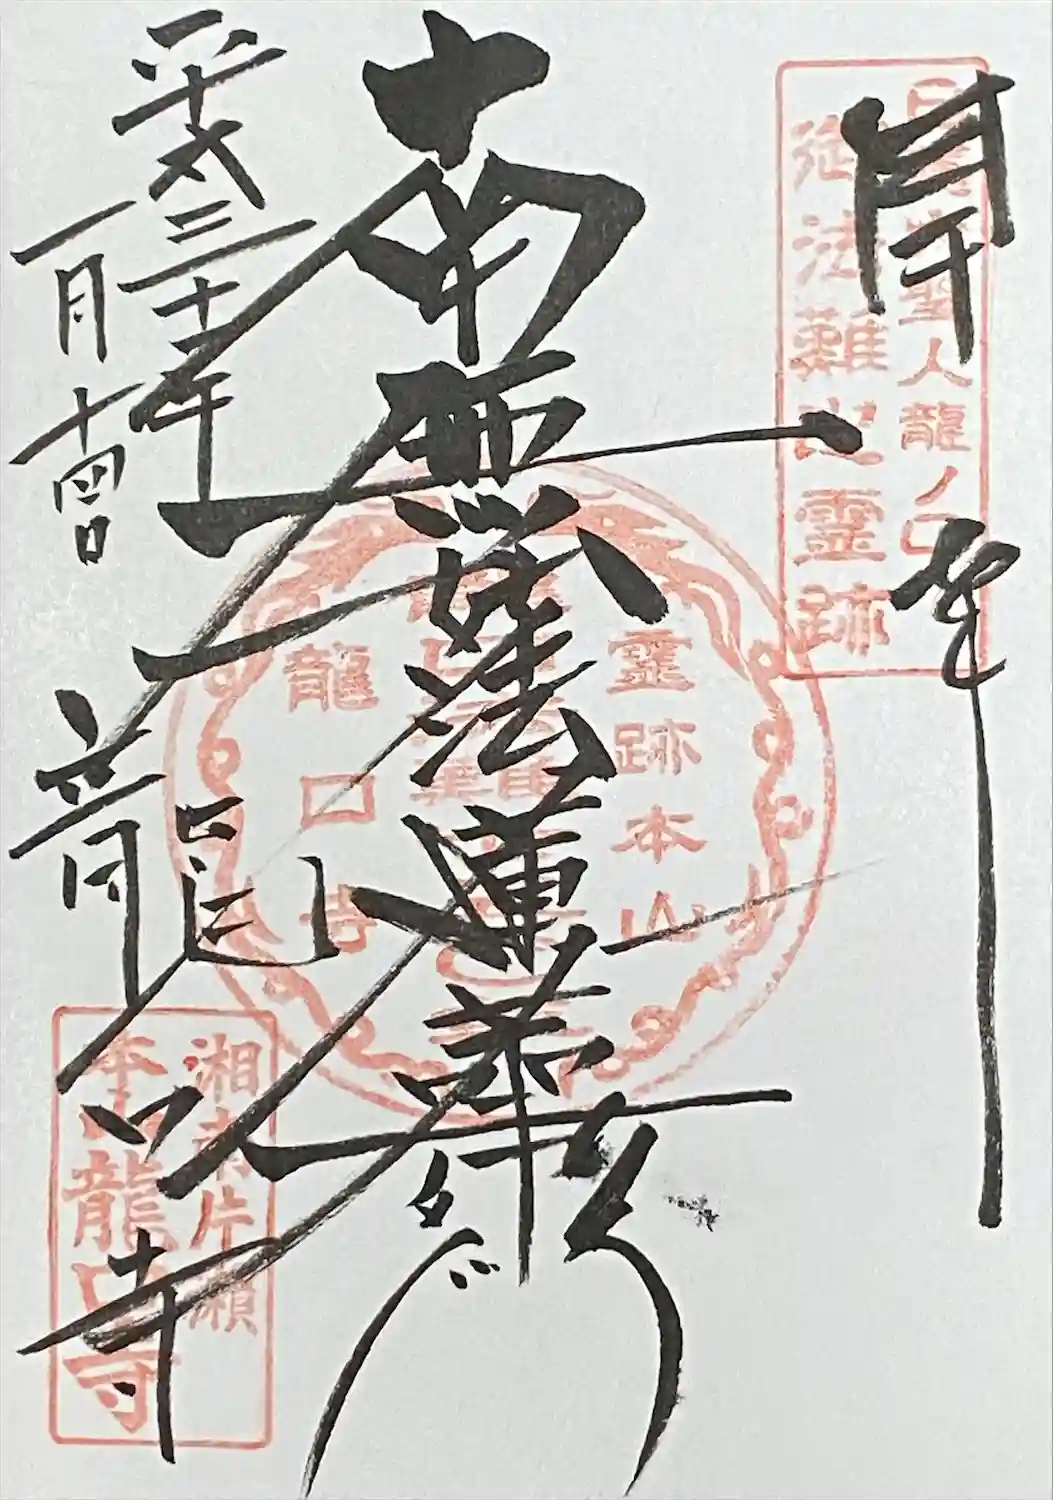 日蓮大聖人龍ノ口
御法難之霊跡
南無妙法蓮華経
霊跡本山
龍口寺
平成三十一年
一月十四日
龍口寺
湘南片瀬
本山龍口寺